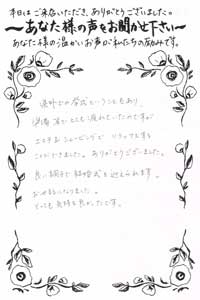 本日は ご来店いただき、ありがとうございました。
〜あなた様の声をお聞かせ下さい〜
あなた様の温かいお声が私たちの励みです。
県外での挙式ということもあり、
準備 等で とても疲れていたのですが
エステ& シェービングで リラックスする
ことができました。ありがとうございました。
良い調子で 結婚式を 迎えられます。
お世話になりました。
とっても気持ち良かったです。